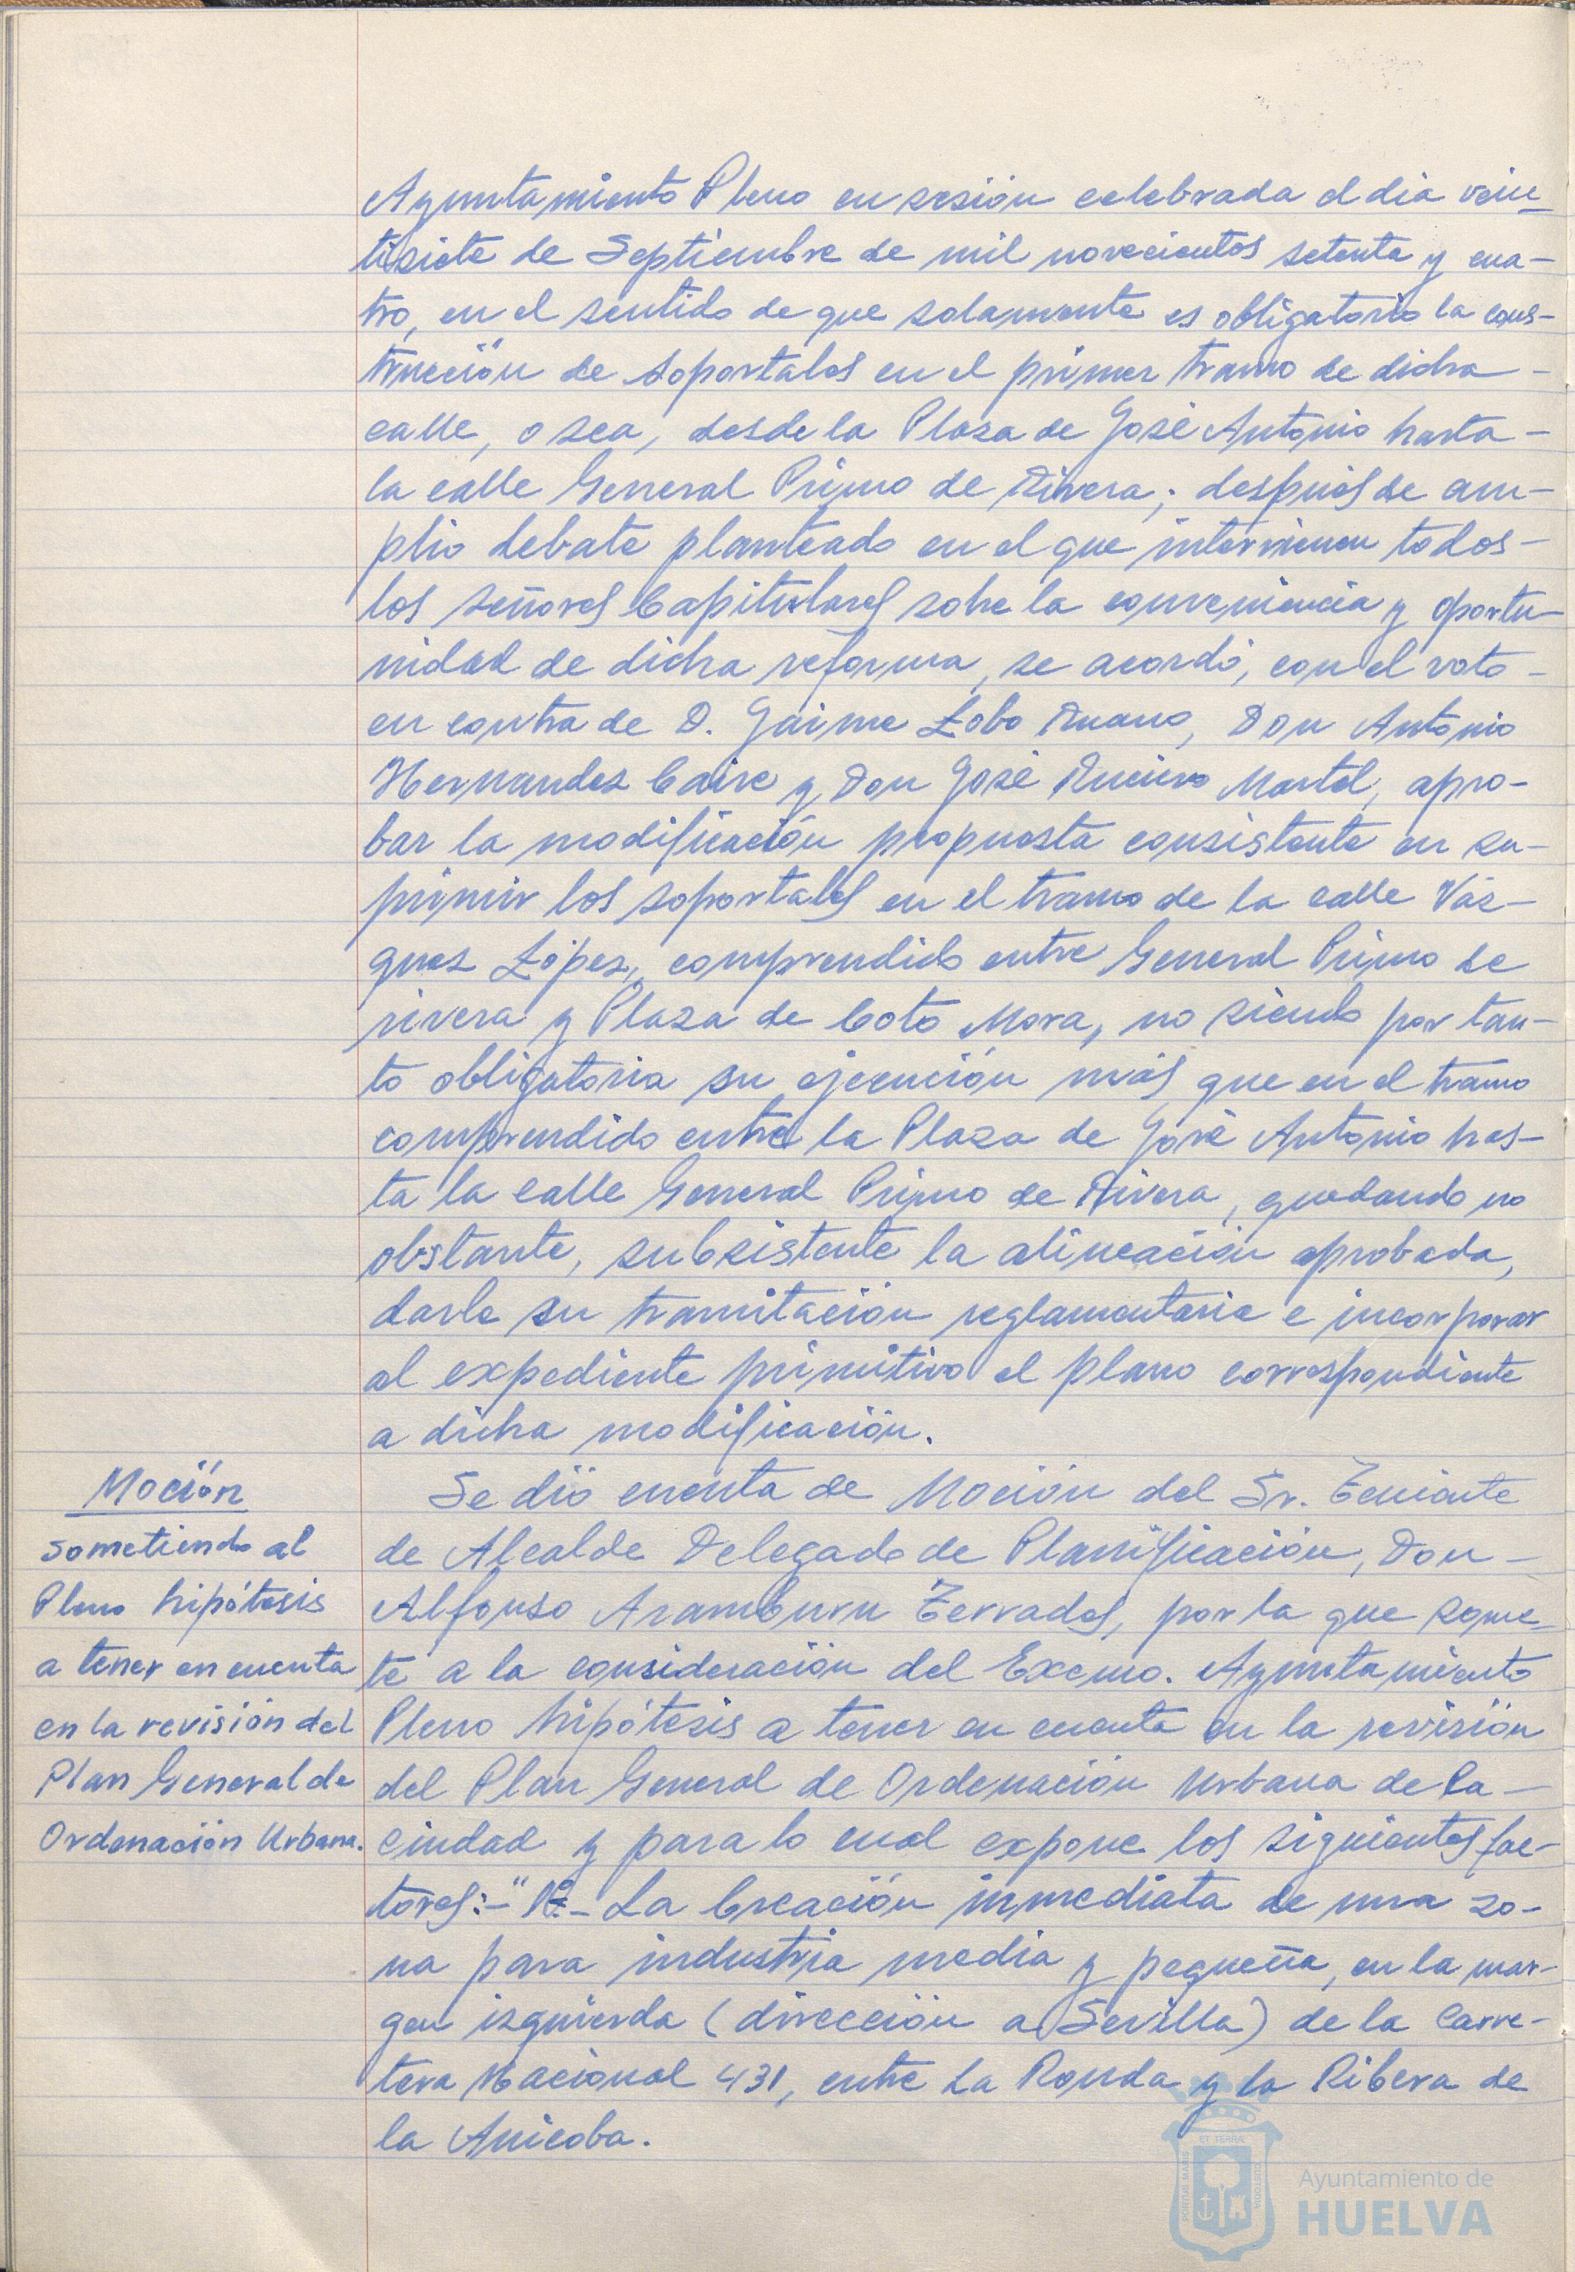 Ayuntamiento Pleno en sesión celebrada el dia vein-
tisiete de Septiembre de mil novecientos setenta y cua-
tro, en el sentido de que solamente es obligatorio la cons-
trucción de soportales en el primer tramo de dicha -
calle, o sea, desde la Plaza de José Antonio hasta -
la calle General Primo de Rivera; después de am-
plio debate planteado en el que intervienen todos -
los señores Capitulares sobre la conveniencia y oportu-
nidad de dicha reforma, se acordó, con el voto -
en contra de D. Jaime Lobo Ruano, Don Antonio
Hernandez Caire y Don José Martel, apro-
bar la modificación propuesta consistente en su-
primir los soportales en el tramo de la calle Váz-
quez López, comprendido entre General Primo de
rivera y Plaza de Coto Mora, no siendo por tan-
to obligatoria su ejecución más que en el tramo
comprendido entre la Plaza de José Antonio has-
ta la calle General Primo de Rivera, quedando no
obstante, subsistente la alineación aprobada,
darle su tramitación reglamentaria e incorporar
al expediente primitivo el plano correspondiente
a dicha modificación.
Moción
sometiendo al
Pleno hipótesis
a tener en cuenta
en la revisión del
Plan General de
Ordenación Urbana.
Se dió cuenta de Moción del Sr. Teniente
de Alcalde Delegado de Planificación, Don -
Alfonso Aramburu Terrades, por la que some-
te a la consideración del Excmo. Ayuntamiento
Pleno hipótesis a tener en cuenta en la revisión
del Plan General de Ordenación Urbana de la -
Ciudad y para lo cual expone los siguientes fac-
tores:-" 1º.- La Creación inmediata de una zo-
na para industria media y pequeña, en la mar-
gen izquierda (dirección a Sevilla) de la Carre-
tera Nacional 431, entre La Ronda y la Ribera de
la Anicoba.
PORTUS MARIS
ET TERRAE
CUSTODIA
Ayuntamiento de
HUELVA